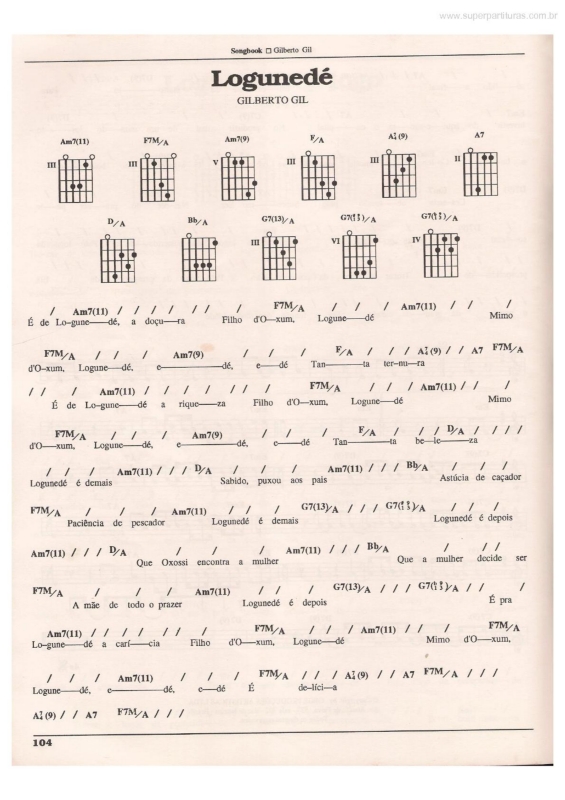 www.superpartituras.com.br
Songbook □ Gilberto Gil
Logunedé
GILBERTO GIL
Am7(11) F7M/A Am7(9) F/A A7/4(9) A7
III III V III III II
D/A Bb/A G7(13)/A G7(♯9/♯5)/A G7(♭9/13)/A
III VI IV
/ Am7(11) / / / / / / / F7M/A / / / Am7(11) / / /
É de Lo-gune—dé, a doçu—ra Filho d'O—xum, Logune—dé Mimo
F7M/A / / / Am7(9) / / / F/A / / / A7/4(9) / / A7 F7M/A
d'O-xum, Logune—dé, e—dé, e—dé Tan—ta ter-nu—ra
/ / / Am7(11) / / / / / / / F7M/A / / / Am7(11) / / /
É de Lo-gune—dé a rique—za Filho d'O—xum, Logune—dé Mimo
F7M/A / / / Am7(9) / / / F/A / / / D/A / / / /
d'O—xum, Logune—dé, e—dé, e—dé Tan—ta be—le—za
/ / / Am7(11) / / / D/A / / / Am7(11) / / / Bb/A / /
Logunedé é demais Sabido, puxou aos pais Astúcia de caçador
F7M/A / / / Am7(11) / / / G7(13)/A / / / G7(♭9/13)/A / /
Paciência de pescador Logunedé é demais Logunedé é depois
Am7(11) / / / D/A / / / Am7(11) / / / Bb/A / / /
Que Oxossi encontra a mulher Que a mulher decide ser
F7M/A / / / Am7(11) / / / G7(13)/A / / / G7(♭9/13)/A / / /
A mãe de todo o prazer Logunedé é depois É pra
Am7(11) / / / / / / / F7M/A / / / Am7(11) / / / F7M/A
Lo-gune—dé a carí—cia Filho d'O—xum, Logune—dé Mimo d'O—xum,
/ / / Am7(11) / / / F7M/A / / / A7/4(9) / / A7 F7M/A / / /
Logune—dé, e—dé, e—dé É de-líci—a
A7/4(9) / / A7 F7M/A / / /
104